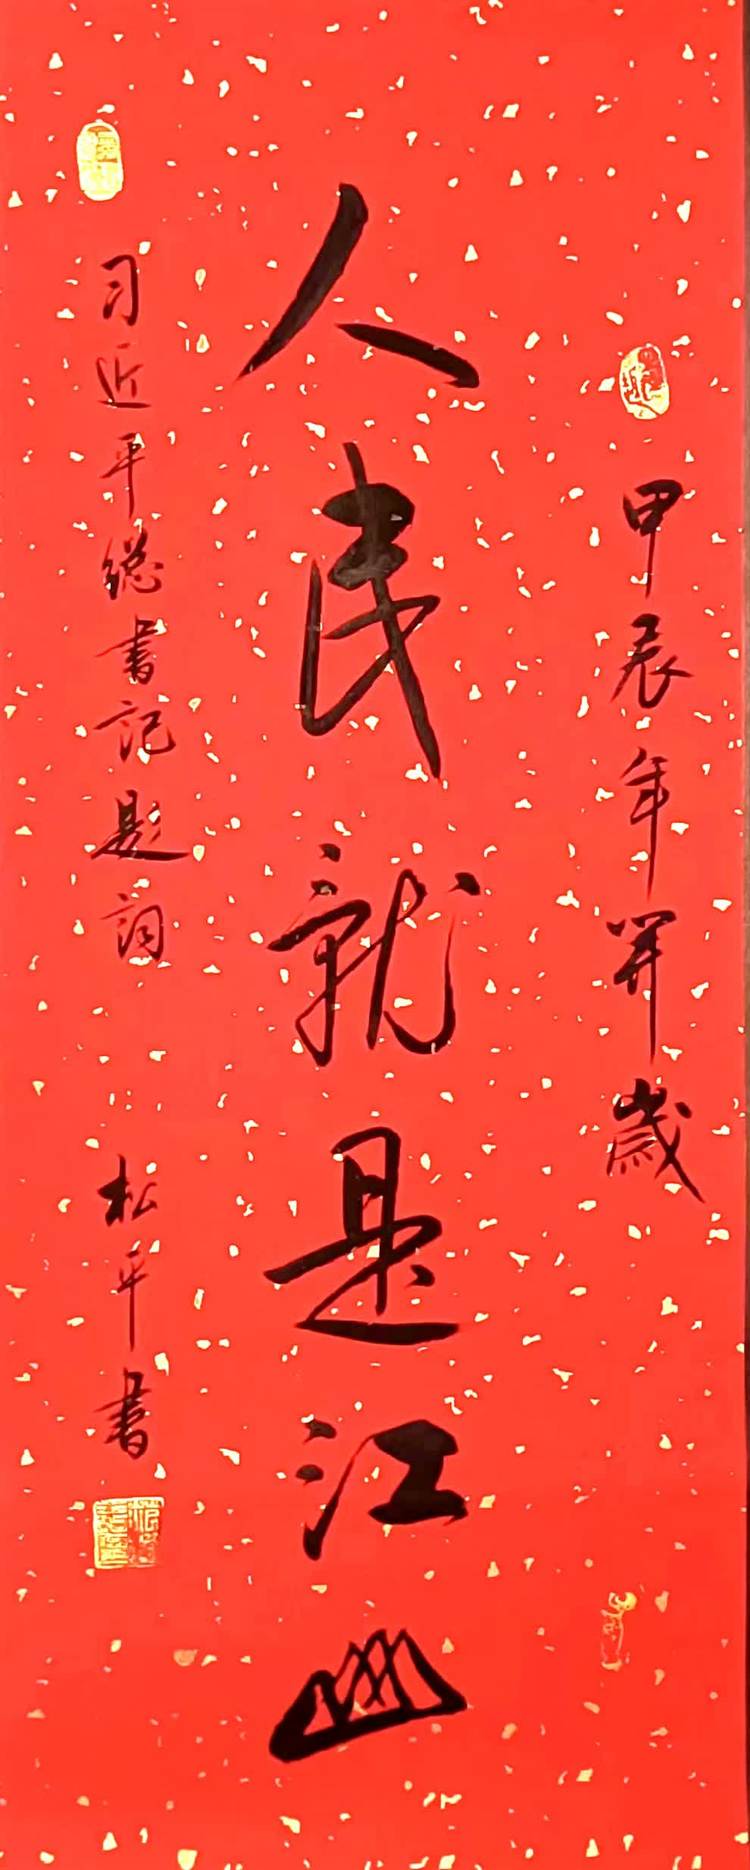 甲辰年開歲
人民就是江山
习近平總書記題詞
松平書